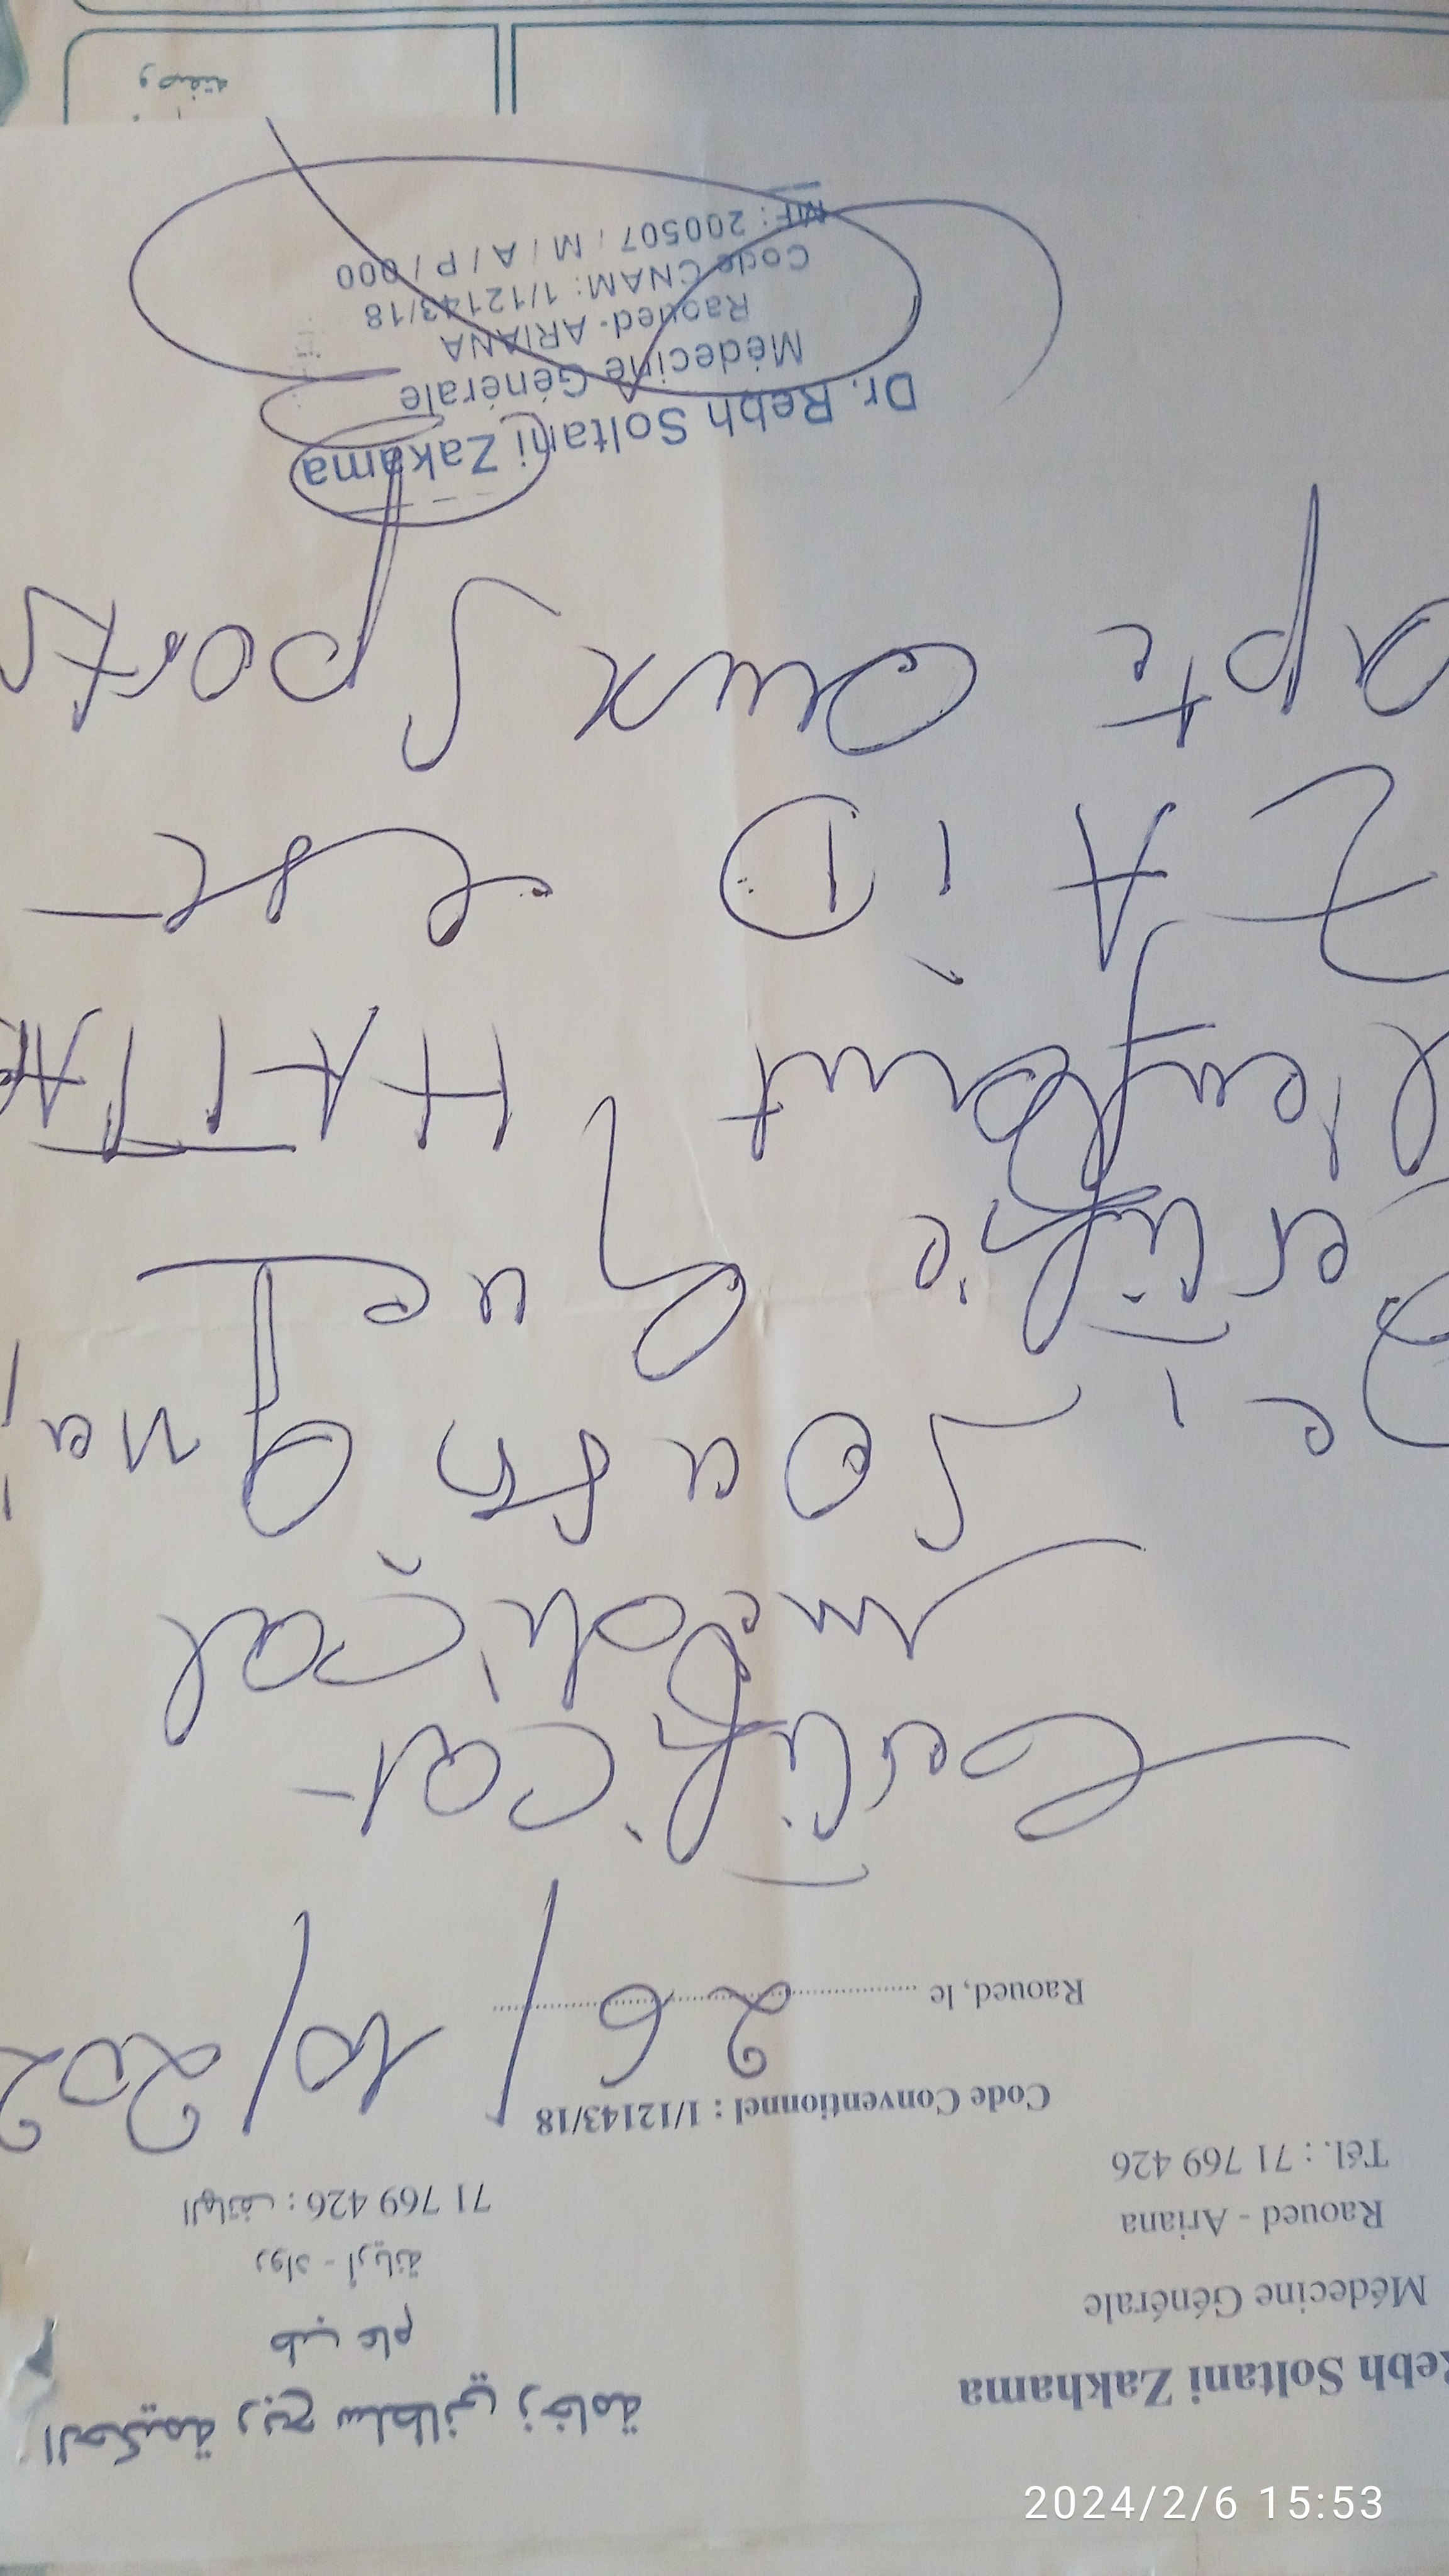 الحكيمة ربح سلطاني زخامة
طب عام
رواد - أريانة
الهاتف : 71 769 426
Rebh Soltani Zakhama
Médecine Générale
Raoued - Ariana
Tél. : 71 769 426
Code Conventionnel : 1/12143/18
Raoued, le 26/10/202
Certificat
médical
Je, soussigné,
certifie que
l'enfant HATTA
ZAID est
apte aux sports
Dr. Rebh Soltani Zakama
Médecine Générale
Raoued - ARIANA
Code CNAM: 1/12143/18
MF : 200507 / M / A / P / 000
وصفته
2024/2/6 15:53